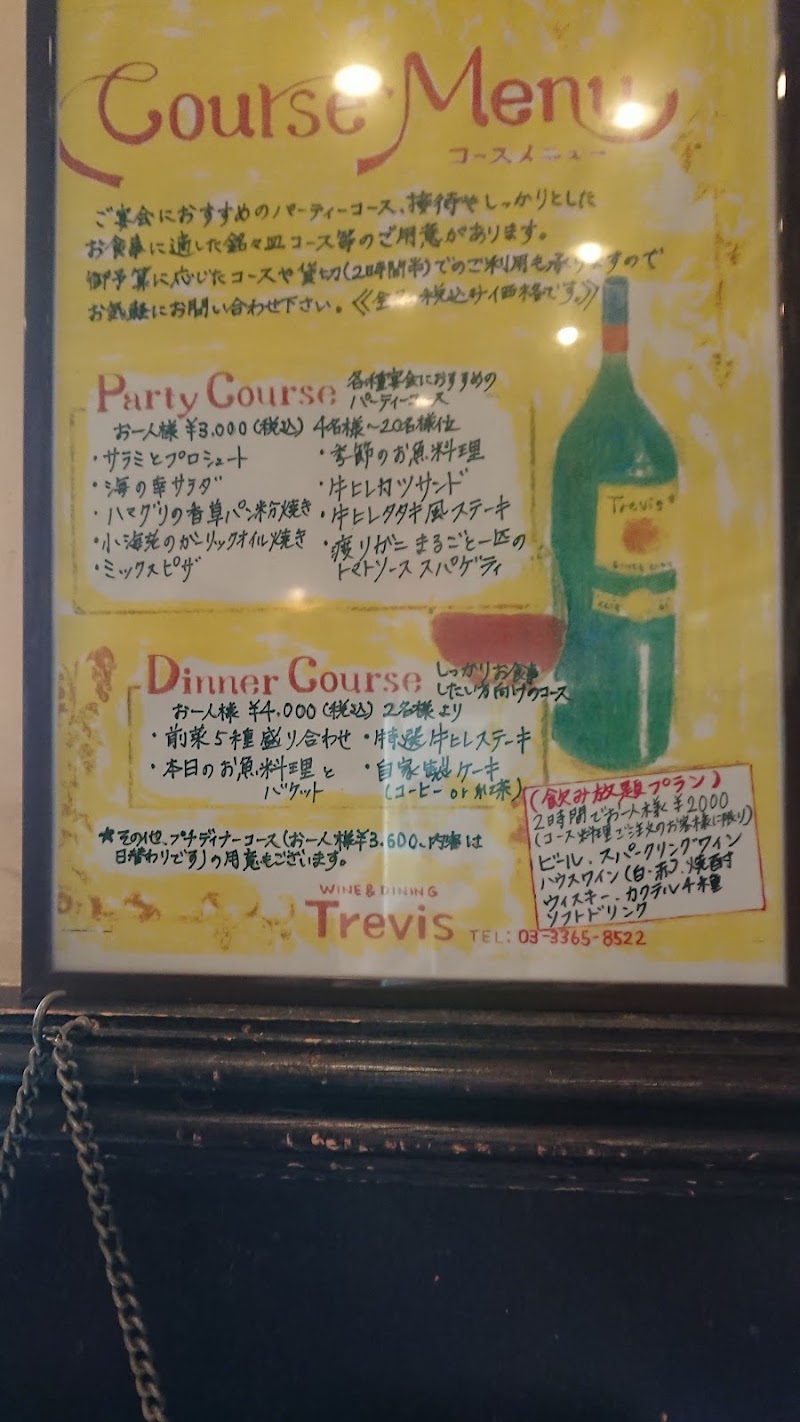 Course Menu
コースメニュー
ご宴会におすすめのパーティーコース、接待やしっかりとした
お食事に適した銘々皿コース等のご用意があります。
御予算に応じたコースや貸切(2時間半)でのご利用も承りますので
お気軽にお問い合わせ下さい。《全て税込み価格です。》
Party Course 各種宴会におすすめの
パーティーコース
お一人様 ¥3,000(税込) 4名様〜20名様位
・サラミとプロシュート
・海の幸サラダ
・ハマグリの香草パン粉焼き
・小海老のガーリックオイル焼き
・ミックスピザ
・季節のお魚料理
・牛ヒレカツサンド
・牛ヒレタタキ風ステーキ
・渡りガニまるごと一匹の
トマトソーススパゲティ
Trevis
Dinner Course しっかりお食事
したい方向けのコース
お一人様 ¥4,000(税込) 2名様より
・前菜5種盛り合わせ
・本日のお魚料理と
バケット
・特選牛ヒレステーキ
・自家製ケーキ
(コーヒー or 紅茶)
★その他、プチディナーコース(お一人様¥3,600、内容は
日替わりです)の用意もございます。
(飲み放題プラン)
2時間でお一人様 ¥2000
(コース料理ご注文のお客様に限り)
ビール・スパークリングワイン
ハウスワイン(白・赤)・焼酎
ウィスキー・カクテル4種
ソフトドリンク
WINE & DINING
Trevis TEL: 03-3365-8522